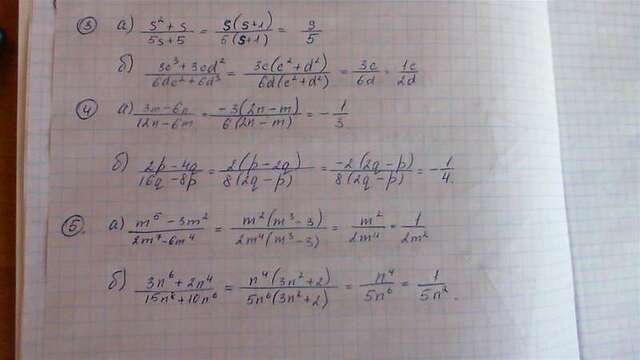 ③ а) (s² + s)/(5s + 5) = (s(s+1))/(5(s+1)) = s/5
б) (3c³ + 3cd²)/(6dc² + 6d³) = (3c(c² + d²))/(6d(c² + d²)) = 3c/6d = 1c/2d
④ а) (3m - 6n)/(12n - 6m) = (-3(2n - m))/(6(2n - m)) = -1/3
б) (2p - 4q)/(16q - 8p) = (2(p - 2q))/(8(2q - p)) = (-2(2q - p))/(8(2q - p)) = -1/4.
⑤. а) (m⁵ - 3m²)/(2m⁷ - 6m⁴) = (m²(m³ - 3))/(2m⁴(m³ - 3)) = m²/2m⁴ = 1/2m²
б) (3n⁶ + 2n⁴)/(15n⁸ + 10n⁶) = (n⁴(3n² + 2))/(5n⁶(3n² + 2)) = n⁴/5n⁶ = 1/5n².